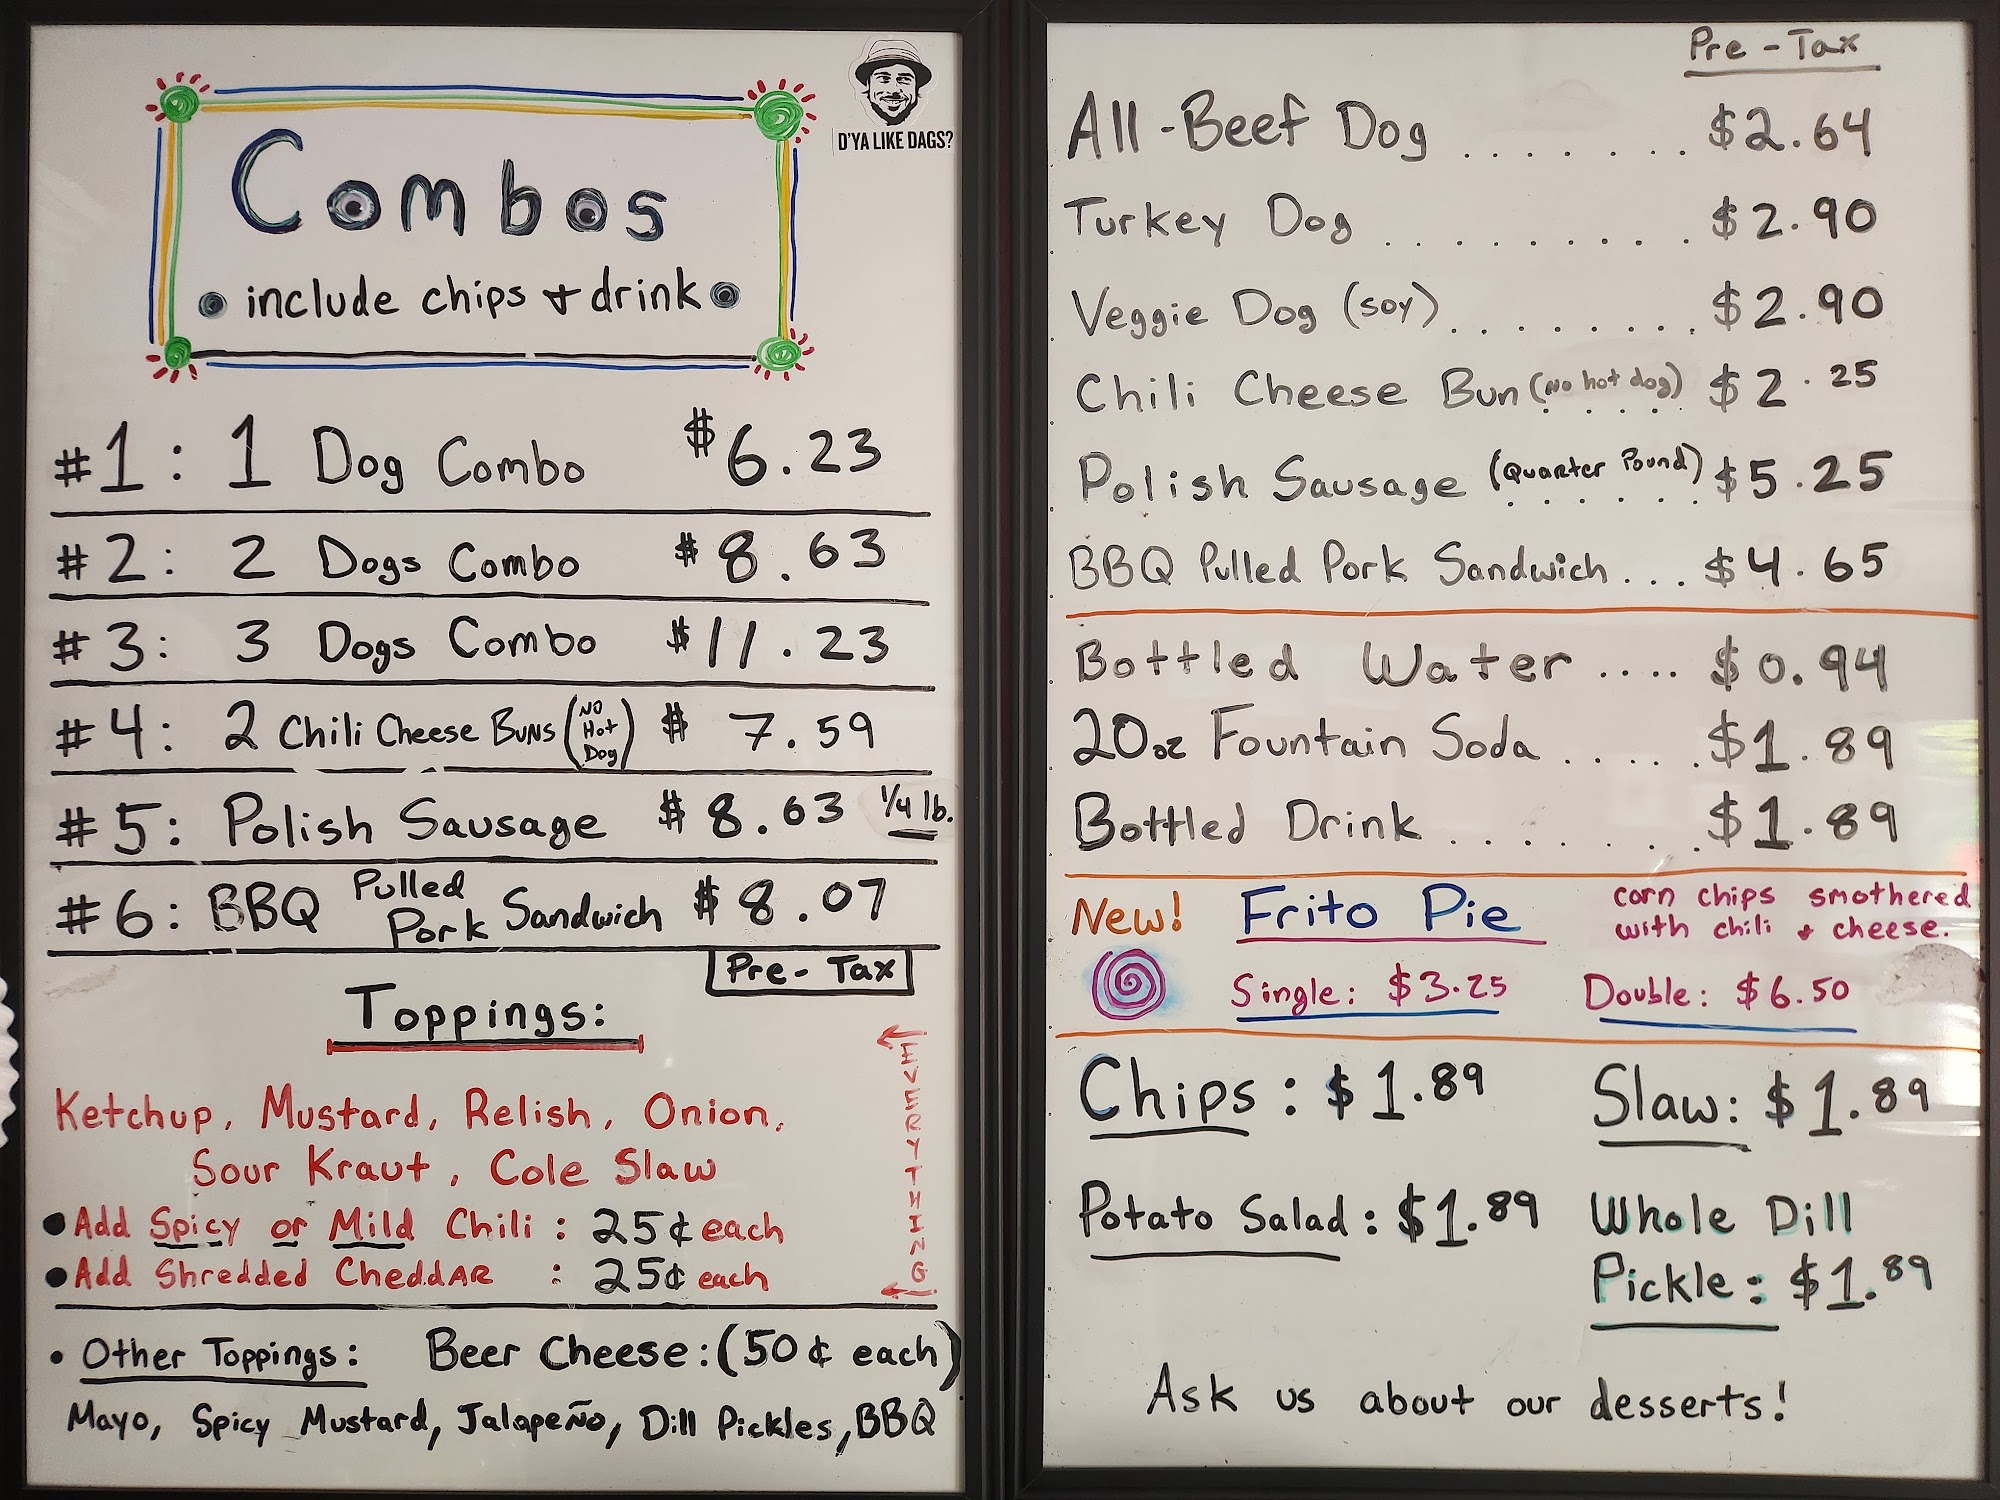 D'YA LIKE DAGS?
Combos
include chips + drink
#1: 1 Dog Combo $6.23
#2: 2 Dogs Combo $8.63
#3: 3 Dogs Combo $11.23
#4: 2 Chili Cheese Buns (No Hot Dog) $7.59
#5: Polish Sausage $8.63 1/4 lb.
#6: BBQ Pulled Pork Sandwich $8.07
Pre-Tax
Toppings:
Ketchup, Mustard, Relish, Onion,
Sour Kraut, Cole Slaw
• Add Spicy or Mild Chili: 25¢ each
• Add Shredded Cheddar : 25¢ each
EVERYTHING
• Other Toppings: Beer Cheese: (50¢ each)
Mayo, Spicy Mustard, Jalapeño, Dill Pickles, BBQ
Pre-Tax
All-Beef Dog ........ $2.64
Turkey Dog .......... $2.90
Veggie Dog (soy)......... $2.90
Chili Cheese Bun (No hot dog) .... $2.25
Polish Sausage (Quarter Pound) ...... $5.25
BBQ Pulled Pork Sandwich... $4.65
Bottled Water .... $0.94
20oz Fountain Soda ..... $1.89
Bottled Drink ........ $1.89
New! Frito Pie
corn chips smothered
with chili + cheese.
Single: $3.25 Double: $6.50
Chips: $1.89 Slaw: $1.89
Potato Salad: $1.89 Whole Dill
Pickle: $1.89
Ask us about our desserts!